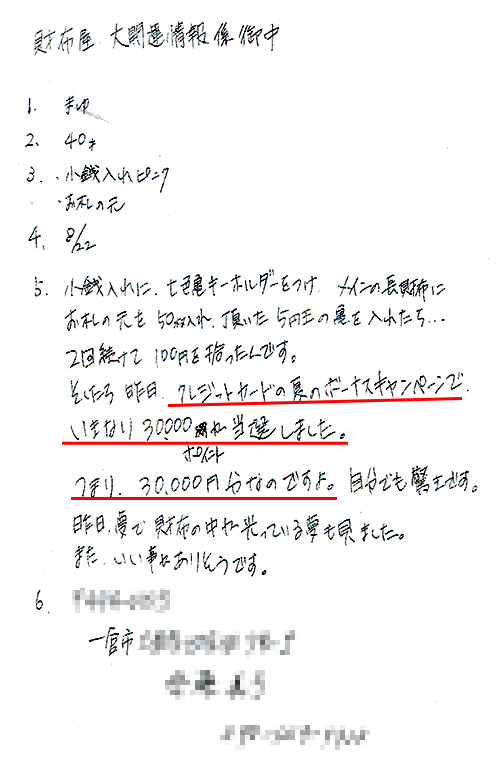 財布屋 大開運情報係御中
1. まゆ
2. 40才
3. ・小銭入れピンク
・お札の元
4. 8/22
5. 小銭入れに、七色亀キーホルダーをつけ メインの長財布に
お札の元を50枚入れ、頂いた5円玉の亀を入れたら…
2回続けて100円を拾ったんです。
そしたら 昨日、クレジットカードの夏のボーナスキャンペーンで、
いきなり30,000 が当選しました。
ポイント
つまり、30,000円分なのですよ。自分でも驚きです。
昨日、夢で財布の中が光っている夢も見ました。
また、いい事がありそうです。
6.
一宮市